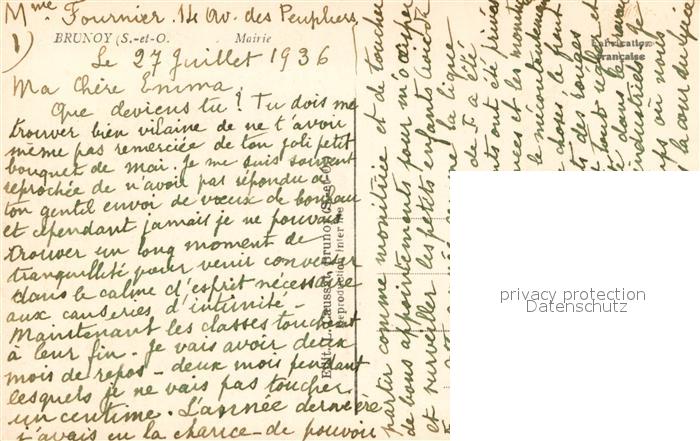 Mme Fournier. 14 Av. des Peupliers
1)
BRUNOY (S.-et-O.
Mairie
Fabrication
Française
Le 27 Juillet 1936
Ma Chère Emma,
Que deviens tu? Tu dois me
trouver bien vilaine de ne t'avoir
même pas remerciée de ton joli petit
bouquet de mai. Je me suis souvent
reprochée de n'avoir pas répondu à
ton gentil envoi de vœux de bonheur
et cependant jamais je ne pouvais
trouver un long moment de
tranquillité pour venir converser
dans le calme d'esprit nécessaire
aux causeries d'intimité -
Maintenant les classes touchent
à leur fin. Je vais avoir deux
mois de repos - deux mois pendant
lesquels je ne vais pas toucher
un centime. L'année dernière
j'avais eu la chance de pouvoir
partir comme monitrice et de toucher
de bons appointements pour m'occuper
et surveiller les petits enfants
la ligue
a été
ont été
et les
le mécontentement
choses le
des rouges
tout
dans
industriels
où nous
le cœur
Edit. L. Caussat, Brunoy (S.-et-O.)
Reproduction Interdite
privacy protection
Datenschutz